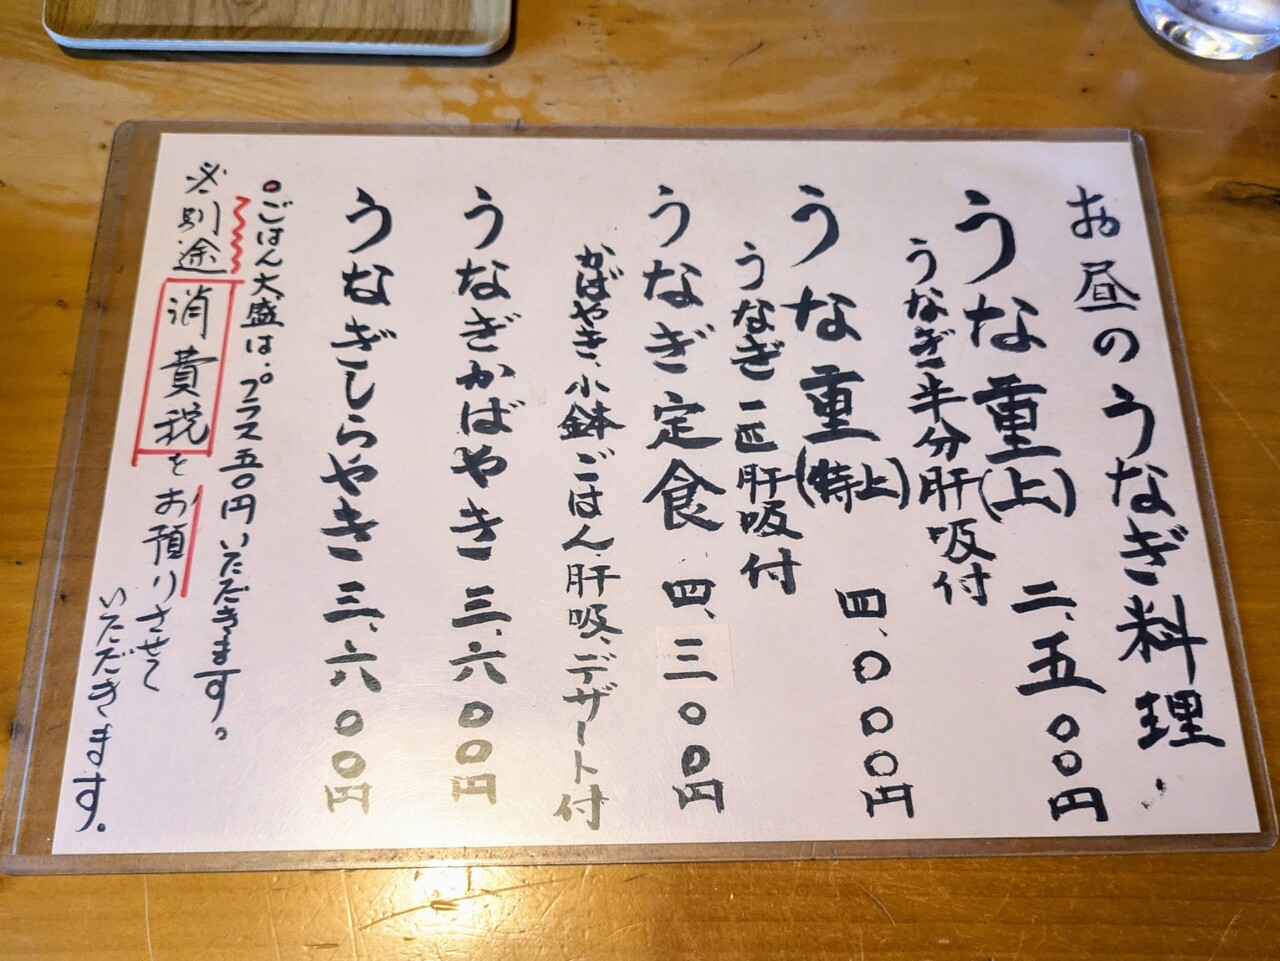 お昼のうなぎ料理
うな重(上) 二、五〇〇円
うなぎ半分肝吸付
うな重(特上) 四、〇〇〇円
うなぎ一匹肝吸付
うなぎ定食 四、三〇〇円
かばやき、小鉢ごはん、肝吸、デザート付
うなぎかばやき 三、六〇〇円
うなぎしらやき 三、六〇〇円
○ごはん大盛は、プラス五〇円いただきます。
※別途消費税をお預りさせて
いただきます。